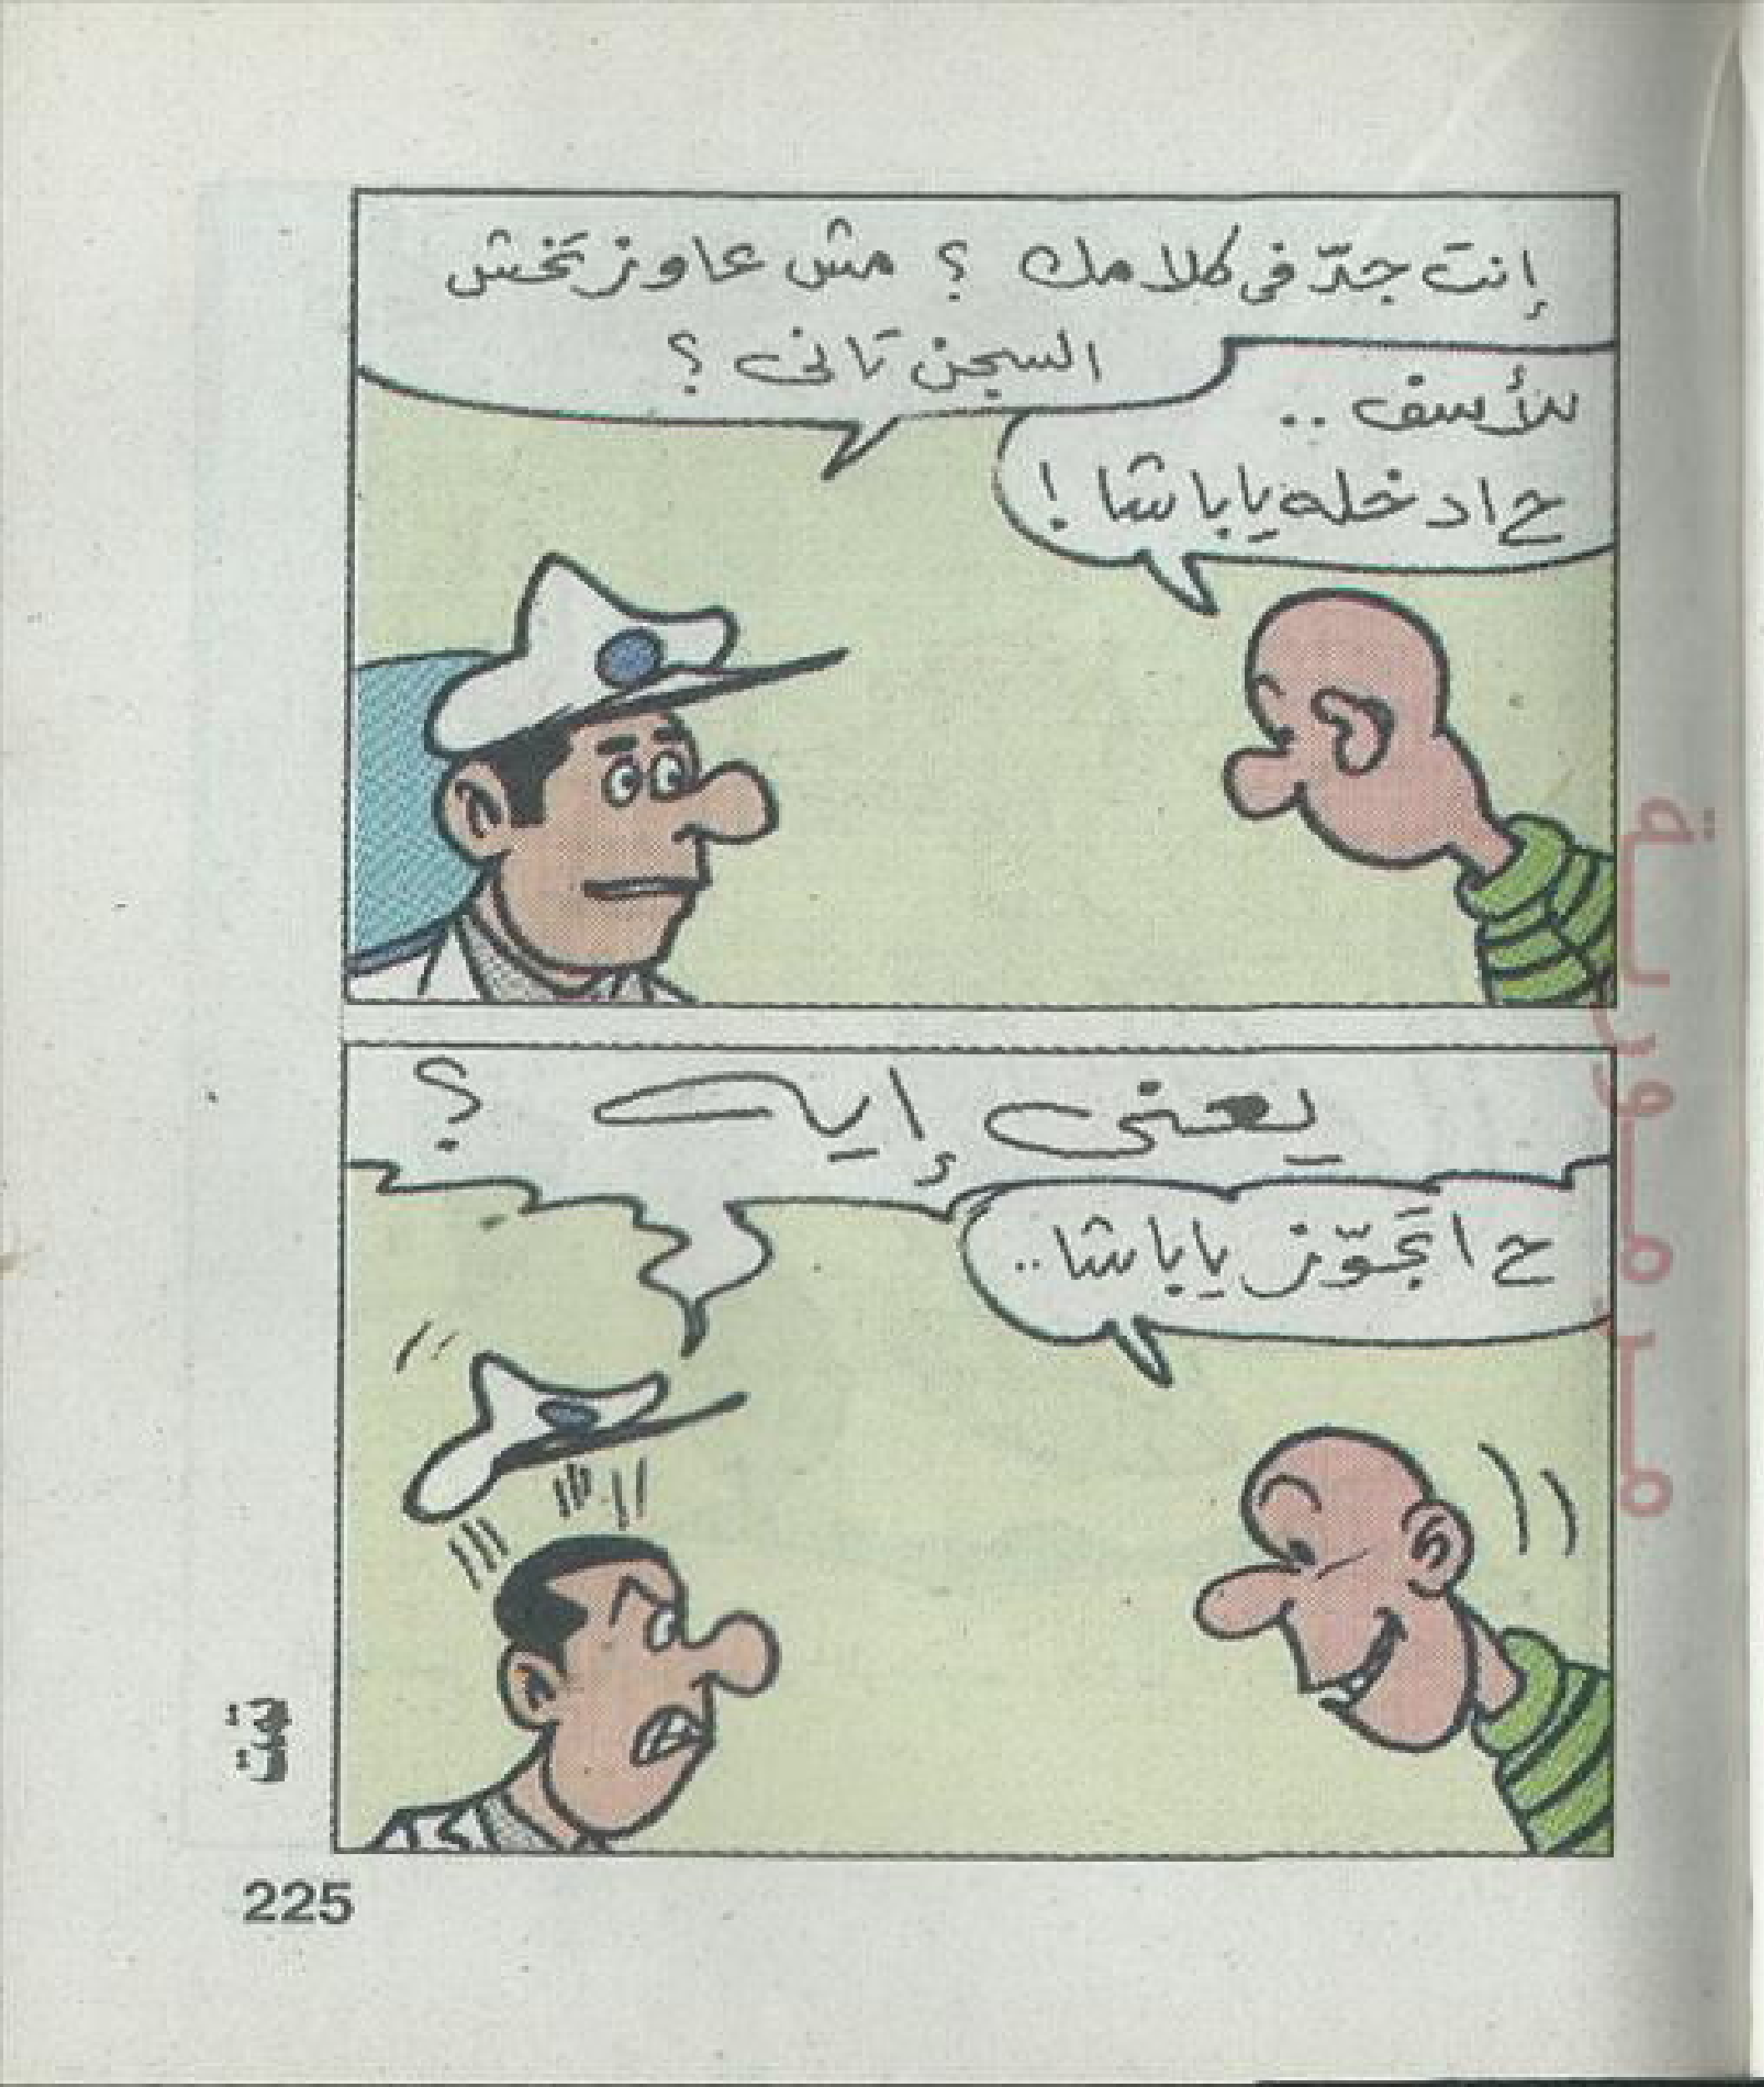 إنت جدّ فى كلامك ؟ مش عاوز تخش
السجن تانى ؟
للأسف ..
ح ادخله يا باشا !
يعنى إيه ؟
ح اتجوّز يا باشا ..
225